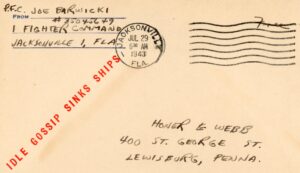 P.F.C. JOE
FROM
1 FIGHTER COMMAND
JACKSONVILLE 1, FLA
JACKSONVILLE
JUL 29
AM
1943
FLA.
Free
IDLE GOSSIP SINKS SHIPS
WEBB
400 ST. GEORGE ST.
LEWISBURG, PENNA.